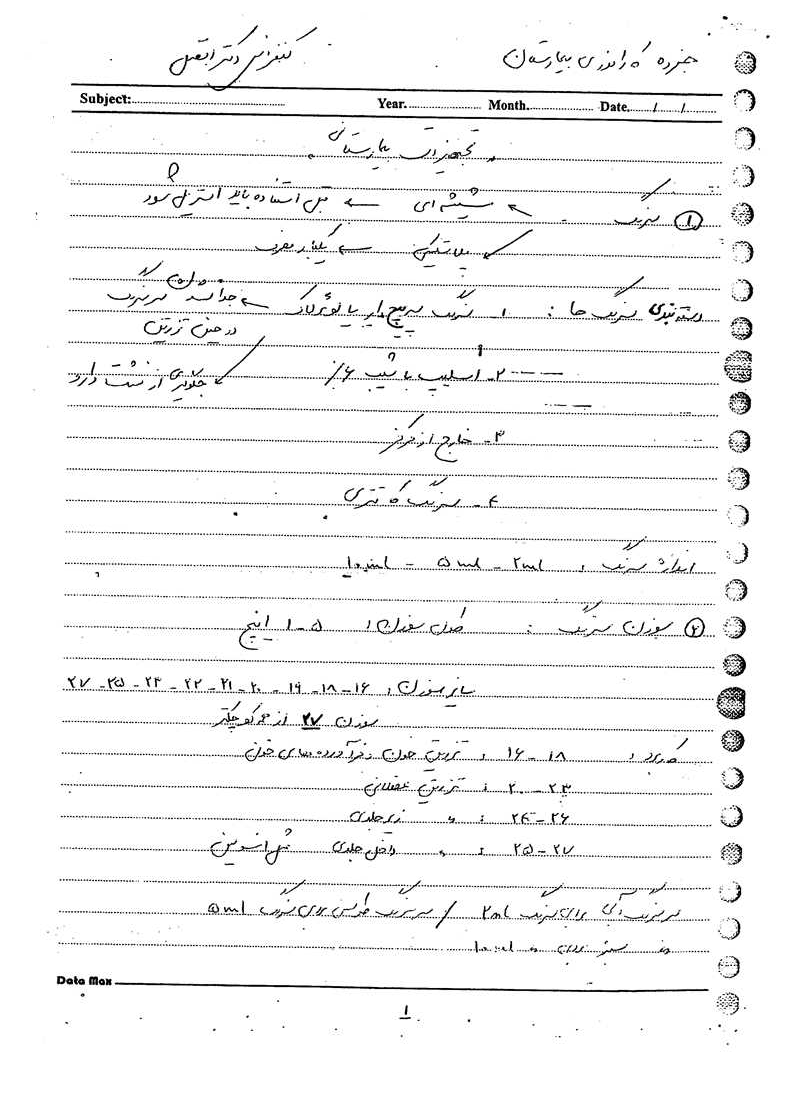 جزوه کارآموزی بیمارستان
کنفرانس دکتر
Subject: Year. Month. Date. / /
تجهیزات بیمارستانی
① سرنگ شیشه ای ← قبل استفاده باید استریل شود
پلاستیکی ← یکبار مصرف
دسته بندی سرنگ ها : ۱- سرنگ پیچ دار یا لوئرلاک ← جدا نشدن سرسرنگ
در حین تزریق
۲- اسلیپ با شیب ۶٪ ← جلوگیری از نشت دارو
۳- خارج از مرکز
۴- سرنگ کاتتری
اندازه سرنگ : ۲ml - ۵ml - ۱۰ml
② سوزن سرنگ : طول سوزن : ۵-۱ اینچ
سایز سوزن : ۱۶-۱۸-۱۹-۲۰-۲۱-۲۲-۲۳-۲۵-۲۷
سوزن ۲۷ از همه کوچکتر
کاربرد : ۱۸-۱۶ : تزریق خون و فرآورده های خونی
۲۳-۲۰ : تزریق عضلانی
۲۶-۲۴ : " زیرجلدی
۲۷-۲۵ : " داخل جلدی مثل انسولین
سرسرنگ آبی برای سرنگ ۲ml / سرسرنگ طوسی برای سرنگ ۵ml
" سبز برای " ۱۰ml
Data Max
۱